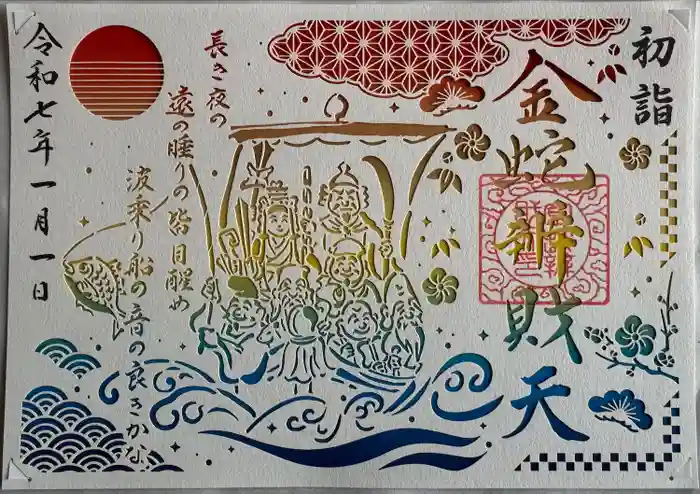 初詣
金蛇辦財天
長き夜の
遠の睡りの皆目醒め
波乗り船の音の良きかな
令和七年一月一日